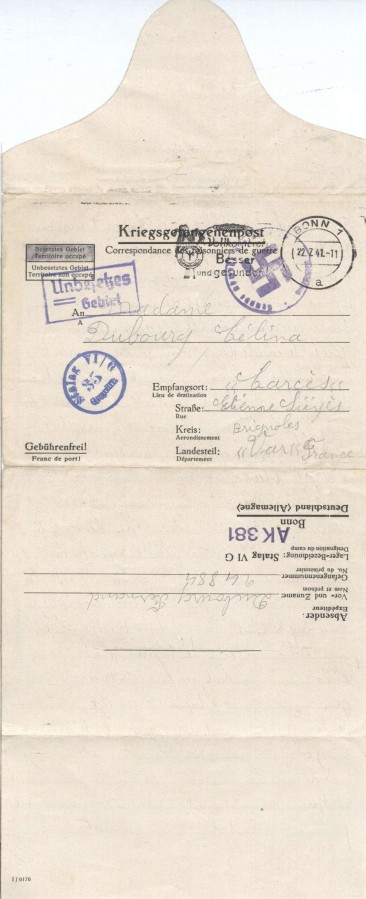 Kriegsgefangenenpost
Correspondance des prisonniers de guerre
BONN 1
22.7.41.-11
a
und gesund
Besetztes Gebiet
Territoire occupé
Unbesetztes Gebiet
Territoire non occupé
Unbesetztes
Gebiet
An Madame
A
Dubourg Célina
Stalag VI/G
35
Geprüft
Empfangsort: «Carcès»
Lieu de destination
Straße:
Rue
Kreis: Brignoles
Arrondissement
Landesteil: «Var» France
Département
Gebührenfrei!
Franc de port!
Absender:
Expéditeur
Vor- und Zuname: Dubourg Fernand
Nom et prénom
Gefangenennummer 94884
No. du prisonnier
Lager-Bezeichnung: Stalag VI G
Désignation du camp
AK 381
Bonn
Deutschland (Allemagne)